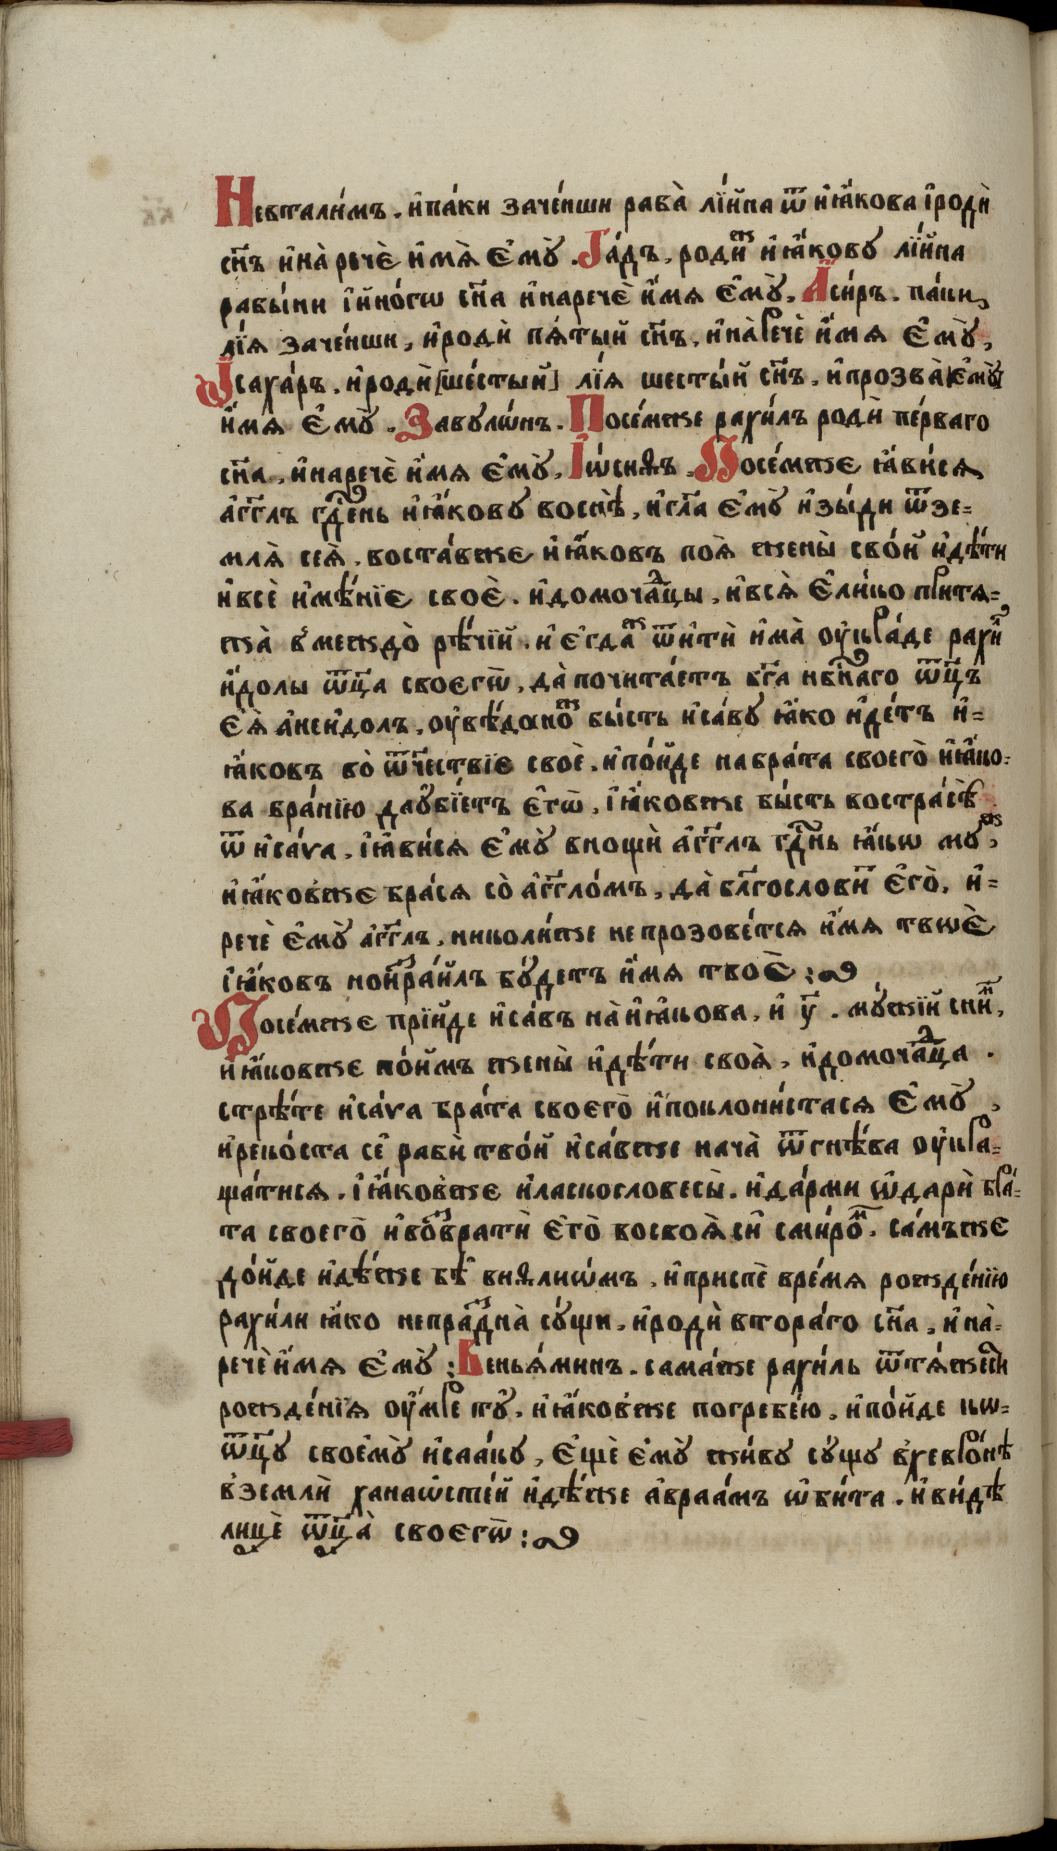 Невтали́мъ. и҆па́ки заче́нши раба̀ лі́йна ѿ и҆ꙗ҆кова і҆родѝ
сн҃ъ и҆на̀речѐ и҆мѧ̀ є҆мꙋ̀. Га́дъ. роди́ж и҆ꙗ҆́ковꙋ лі́йна
рабы́ни і҆и҆но́гѡ сн҃а и҆наречѐ и҆́мѧ є҆мꙋ̀. А҆си́ръ. па́ки,
лі́ѧ заче́нши, и҆родѝ пѧ́тый сн҃ъ, и҆на̀речѐ и҆́мѧ є҆мꙋ̀,
І҆саха́ръ. и҆родѝ [ше́стый] лі́ѧ шесты́й сн҃ъ. и҆прозва̀ є҆мꙋ̀
и҆́мѧ є҆мꙋ̀. Завꙋлѡ́нъ. Посе́мже рахи́лъ родѝ пе́рваго
сн҃а, и҆наречѐ и҆́мѧ є҆мꙋ̀, І҆ѡ́сиѳъ. Посе́мже ꙗ҆ви́сѧ
а҆́гг҃лъ гдⷭ҇ень и҆ꙗ҆́ковꙋ воснѣ̀, и҆гл҃а є҆мꙋ̀ и҆зы́ди ѿзе=
млѧ̀ сеѧ̀. воста́вже и҆ꙗ҆́ковъ поѧ̀ жены̀ сво́и и҆дѣ́ти
и҆всѐ и҆мѣ́нїе своѐ. и҆домоча́дцы, и҆всѧ̀ є҆ли́ко притѧ=
жа̀ в̾междо̀ рѣ́чїй. и҆ є҆гда́ж ѿи҆тѝ и҆ма̀ ѹ҆кра́де рахи́л
и҆́долы ѿц҃а своегѡ̀, да̀почита́етъ бг҃а нбⷭ҇наго ѿц҃ъ
є҆ѧ̀ а҆неи҆́долъ. ѹ҆вѣ́данож бы́сть и҆са́вꙋ ꙗ҆́ко и҆де́тъ и҆=
ꙗ҆́ковъ во̀ ѿч҃ествїе своѐ. и҆по́йде набра́та своего̀ и҆ꙗ҆́ко=
ва бра́нїю даꙋ҆бїе́тъ є҆гѡ̀, і҆ꙗ҆́ковже бы́сть востра́сѣ
ѿ и҆са́ѵа. і҆ꙗ҆ви́сѧ є҆мꙋ̀ внощѝ а҆́гг҃лъ гдⷭ҇нь ꙗ҆́кѡ мꙋж,
и҆ꙗ҆́ковже бра́сѧ со̀ а҆́гг҃ло́мъ, да̀ блг҃ослови́т є҆го̀, и҆=
речѐ є҆мꙋ̀ а҆́гг҃лъ, николи́же непрозове́тсѧ и҆́мѧ твоѐ
і҆ꙗ҆́ковъ нои҆зра́илъ бꙋ́детъ и҆́мѧ твоѐ:
Посе́мже прїи́де и҆са́въ на̀и҆ꙗ҆́кова, и҆ у҃. мꙋ́жїй сни́м,
и҆ꙗ҆́ковже по́имъ жены̀ и҆дѣ́ти своѧ̀, и҆домоча́дца.
стрѣ́те и҆са́ѵа бра́та своего̀ и҆поклони́стасѧ є҆мꙋ̀,
и҆реко́ста се̑ рабѝ тво́и и҆са́вже нача̀ ѿгнѣ́ва ѹ҆кро=
ща́тисѧ. і҆ꙗ҆́ковже и҆ласкословесы̀. и҆да́рми ѡ҆дарѝ бра́=
та своего̀ и҆возвратѝ є҆го̀ восвоѧ̀си сми́ром. са́мъже
до́йде и҆дѣ́же бѣ̀ виѳлиѡ́мъ. и҆приспѐ вре́мѧ рожде́нїю
рахи́ли ꙗ҆́ко непра́здна̀ сꙋ́щи. и҆родѝ втора́го сн҃а, и҆на̀=
речѐ и҆́мѧ є҆мꙋ̀: Веньѧ́минъ. сама́же рахи́ль ѿтѧ́жести
рожде́нїѧ ѹ҆́мре тꙋ̀. и҆ꙗ҆́ковже погребе́ю. и҆по́йде кѡ=
ѿц҃ꙋ своемꙋ̀ и҆саа́кꙋ, є҆щѐ є҆мꙋ̀ жи́вꙋ сꙋ́щꙋ в̾хевро́нѣ
в̾землѝ ханаѡ́нстей и҆дѣ́же а҆враа́мъ ѡ҆бита̀. и҆ви́дѣ
лицѐ ѿц҃а̀ своегѡ̀: